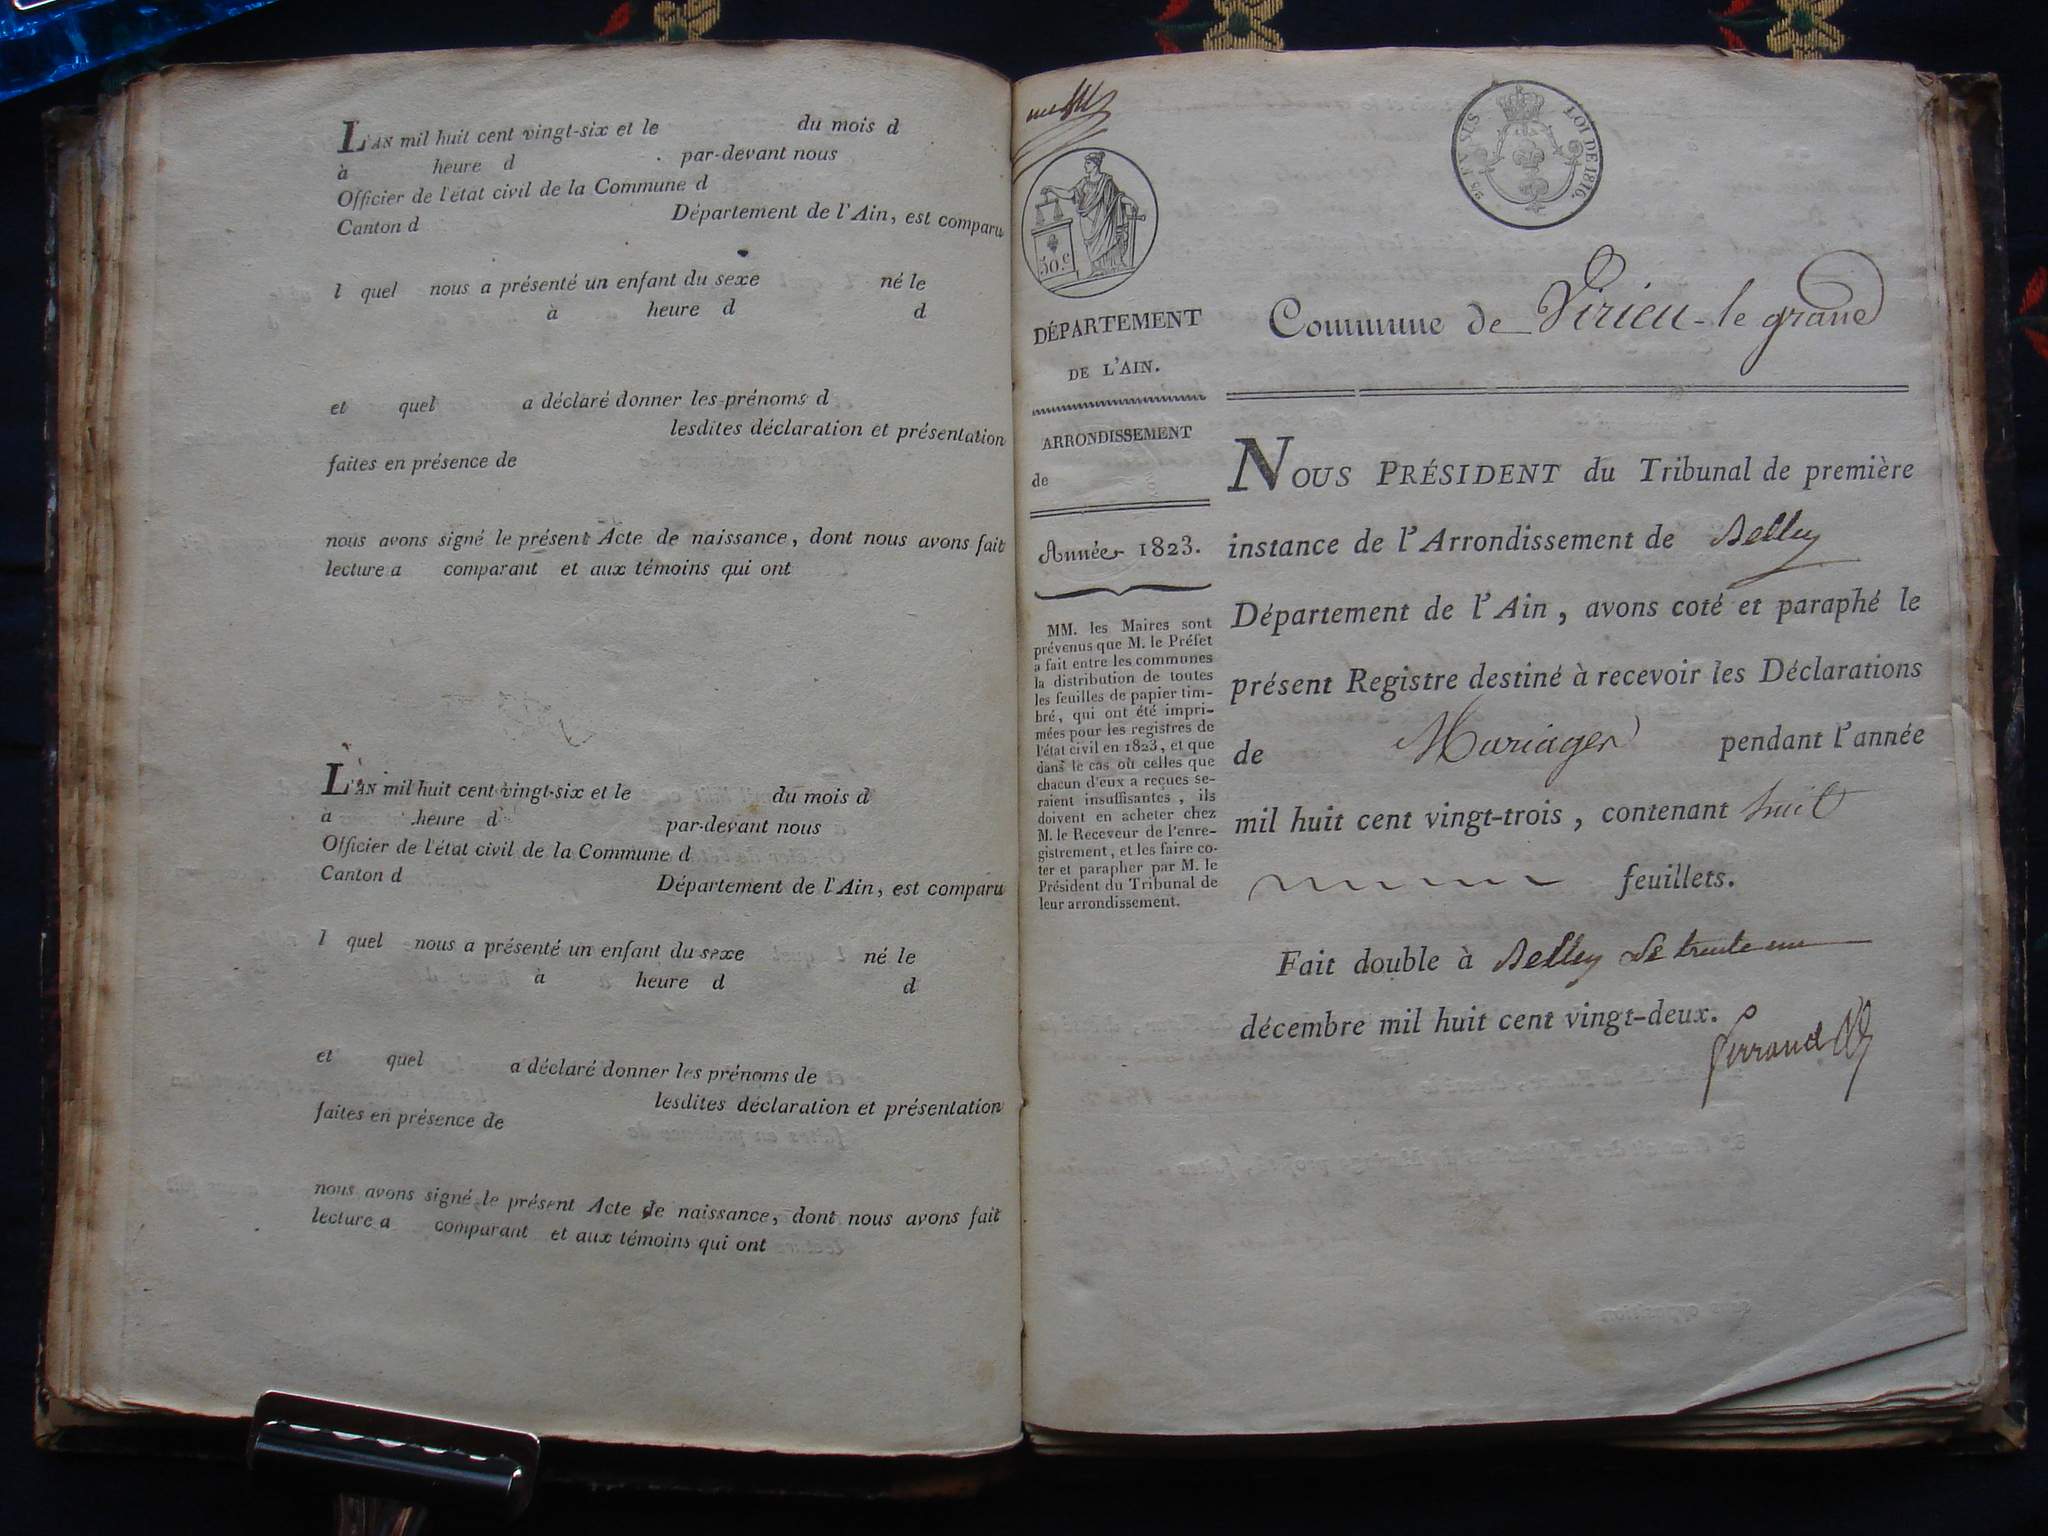 L'AN mil huit cent vingt-six et le du mois d
à heure d par-devant nous
Officier de l'état civil de la Commune d
Canton d Département de l'Ain, est comparu
l quel nous a présenté un enfant du sexe né le
à heure d d
et quel a déclaré donner les prénoms d
lesdites déclaration et présentation
faites en présence de
nous avons signé le présent Acte de naissance, dont nous avons fait
lecture a comparant et aux témoins qui ont
L'AN mil huit cent vingt-six et le du mois d
à heure d par-devant nous
Officier de l'état civil de la Commune d
Canton d Département de l'Ain, est comparu
l quel nous a présenté un enfant du sexe né le
à heure d d
et quel a déclaré donner les prénoms de
lesdites déclaration et présentation
faites en présence de
nous avons signé le présent Acte de naissance, dont nous avons fait
lecture a comparant et aux témoins qui ont
50.c
LOI DE 1816.
DÉPARTEMENT
DE L'AIN.
ARRONDISSEMENT
de
Année 1823.
MM. les Maires sont
prévenus que M. le Préfet
a fait entre les communes
la distribution de toutes
les feuilles de papier tim-
bré, qui ont été impri-
mées pour les registres de
l'état civil en 1823, et que
dans le cas où celles que
chacun d'eux a reçues se-
raient insuffisantes, ils
doivent en acheter chez
M. le Receveur de l'enre-
gistrement, et les faire co-
ter et parapher par M. le
Président du Tribunal de
leur arrondissement.
Commune de Virieu-le grand
NOUS PRÉSIDENT du Tribunal de première
instance de l'Arrondissement de Belley
Département de l'Ain, avons coté et paraphé le
présent Registre destiné à recevoir les Déclarations
de Mariages pendant l'année
mil huit cent vingt-trois, contenant huit
feuillets.
Fait double à Belley le trente un
décembre mil huit cent vingt-deux.